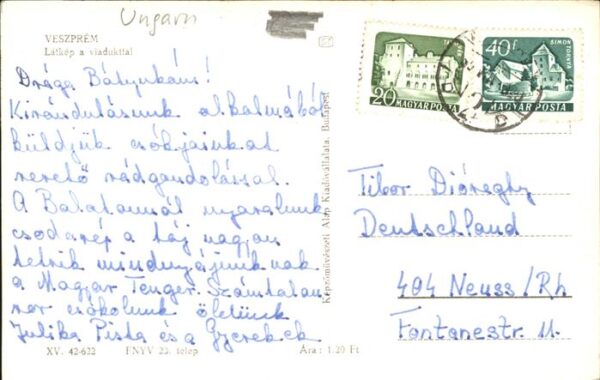 Ungarn
VESZPRÉM
Látkép a viadukttal
Drága Bátyukáns!
Kirándulásunk alkalmából
küldjük csókjainkat
szerető rádgondolással.
A Balatonnál nyaralunk
csodaszép a táj nagyon
tetszik mindnyájunknak
a Magyar Tenger. Számtalan
szor csókolunk ölelünk
Julika Pista és a Gyerekek
XV. 42-632 FNYV 25. telep Ára: 1.20 Ft
Képzőművészeti Alap Kiadóvállalata, Budapest
20 f MAGYAR POSTA
40 f SIMON TORNYA MAGYAR POSTA
Tibor Dióreghy
Deutschland
404 Neuss/Rh
Fontanestr 11.